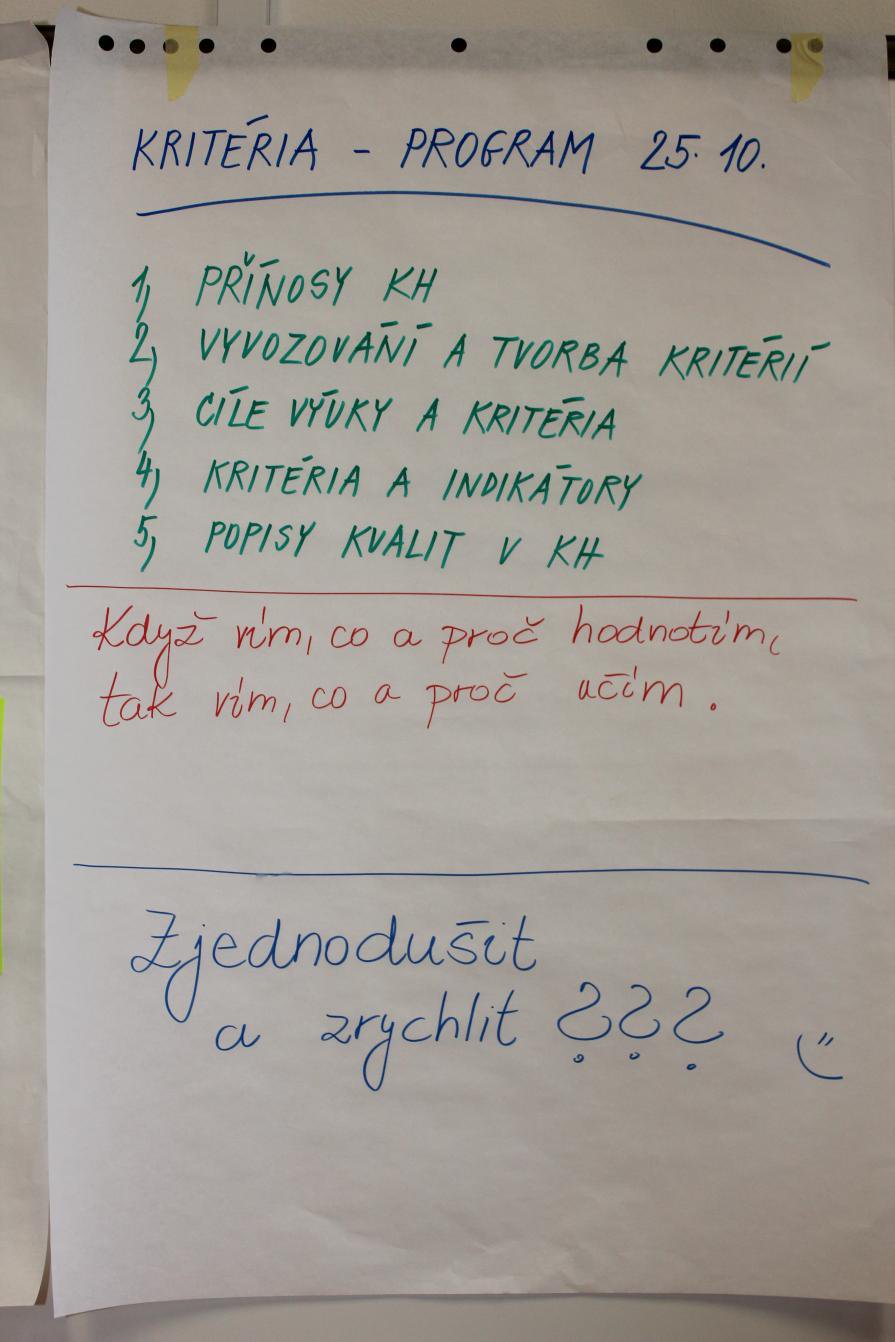 KRITÉRIA - PROGRAM 25. 10.
1, PŘÍNOSY KH
2, VYVOZOVÁNÍ A TVORBA KRITÉRIÍ
3, CÍLE VÝUKY A KRITÉRIA
4, KRITÉRIA A INDIKÁTORY
5, POPISY KVALIT V KH
Když vím, co a proč hodnotím,
tak vím, co a proč učím.
Zjednodušit
a zrychlit ???